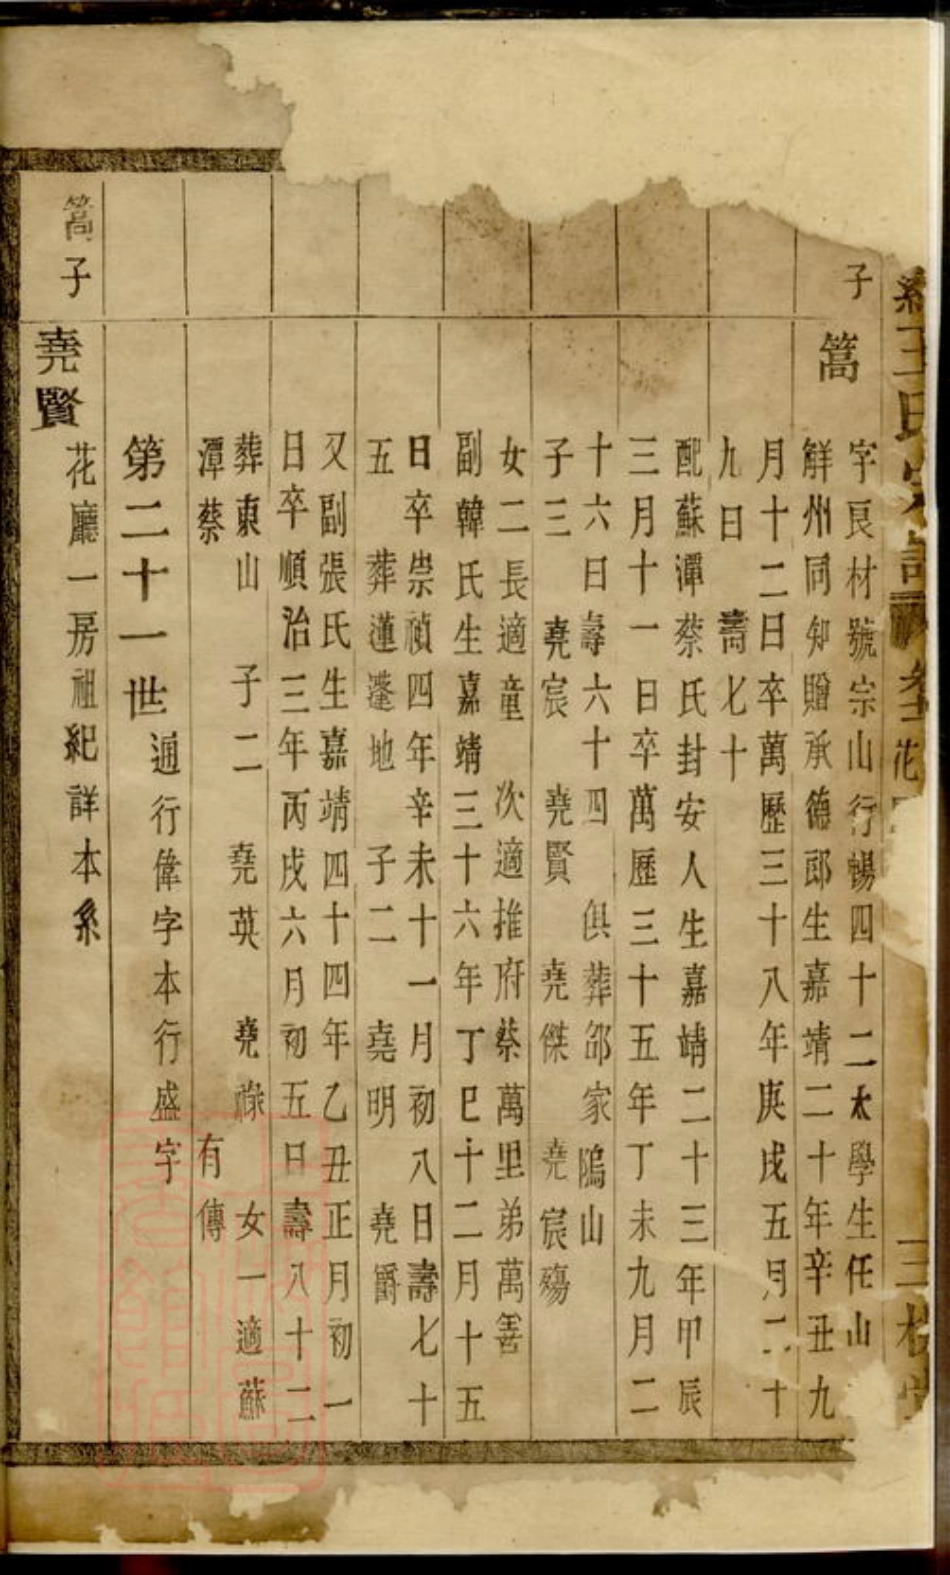 王氏宗譜
三槐堂
子
篙
字良材號宗山行暢四十二太學生任山
解州同知贈承德郎生嘉靖二十年辛丑九
月十二日卒萬歷三十八年庚戌五月二十
九日 壽七十
配蘇潭蔡氏封安人生嘉靖二十三年甲辰
三月十一日卒萬歷三十五年丁未九月二
十六日壽六十四 俱葬邵家隖山
子三 堯宸 堯賢 堯傑 堯宸殤
女二長適童 次適推府蔡萬里弟萬善
副韓氏生嘉靖三十六年丁巳十二月十五
日卒崇禎四年辛未十一月初八日壽七十
五 葬蓮蓬地 子二 堯明 堯爵
又副張氏生嘉靖四十四年乙丑正月初一
日卒順治三年丙戌六月初五日壽八十二
葬東山 子二 堯英 堯祿 女一適蘇
潭蔡 有傳
第二十一世通行偉字本行盛字
篙子
堯賢
花廳一房祖紀詳本系